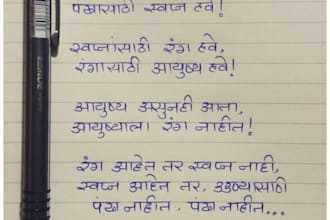 पंखासाठी स्वप्न हवे!
स्वप्नांसाठी रंग हवे,
रंगासाठी आयुष्य हवे!
आयुष्य असुनही आता,
आयुष्याला रंग नाहीत!
रंग आहेत तर स्वप्न नाही,
स्वप्न आहेत तर, उडण्यासाठी
पंख नाहीत, पंख नाहीत...